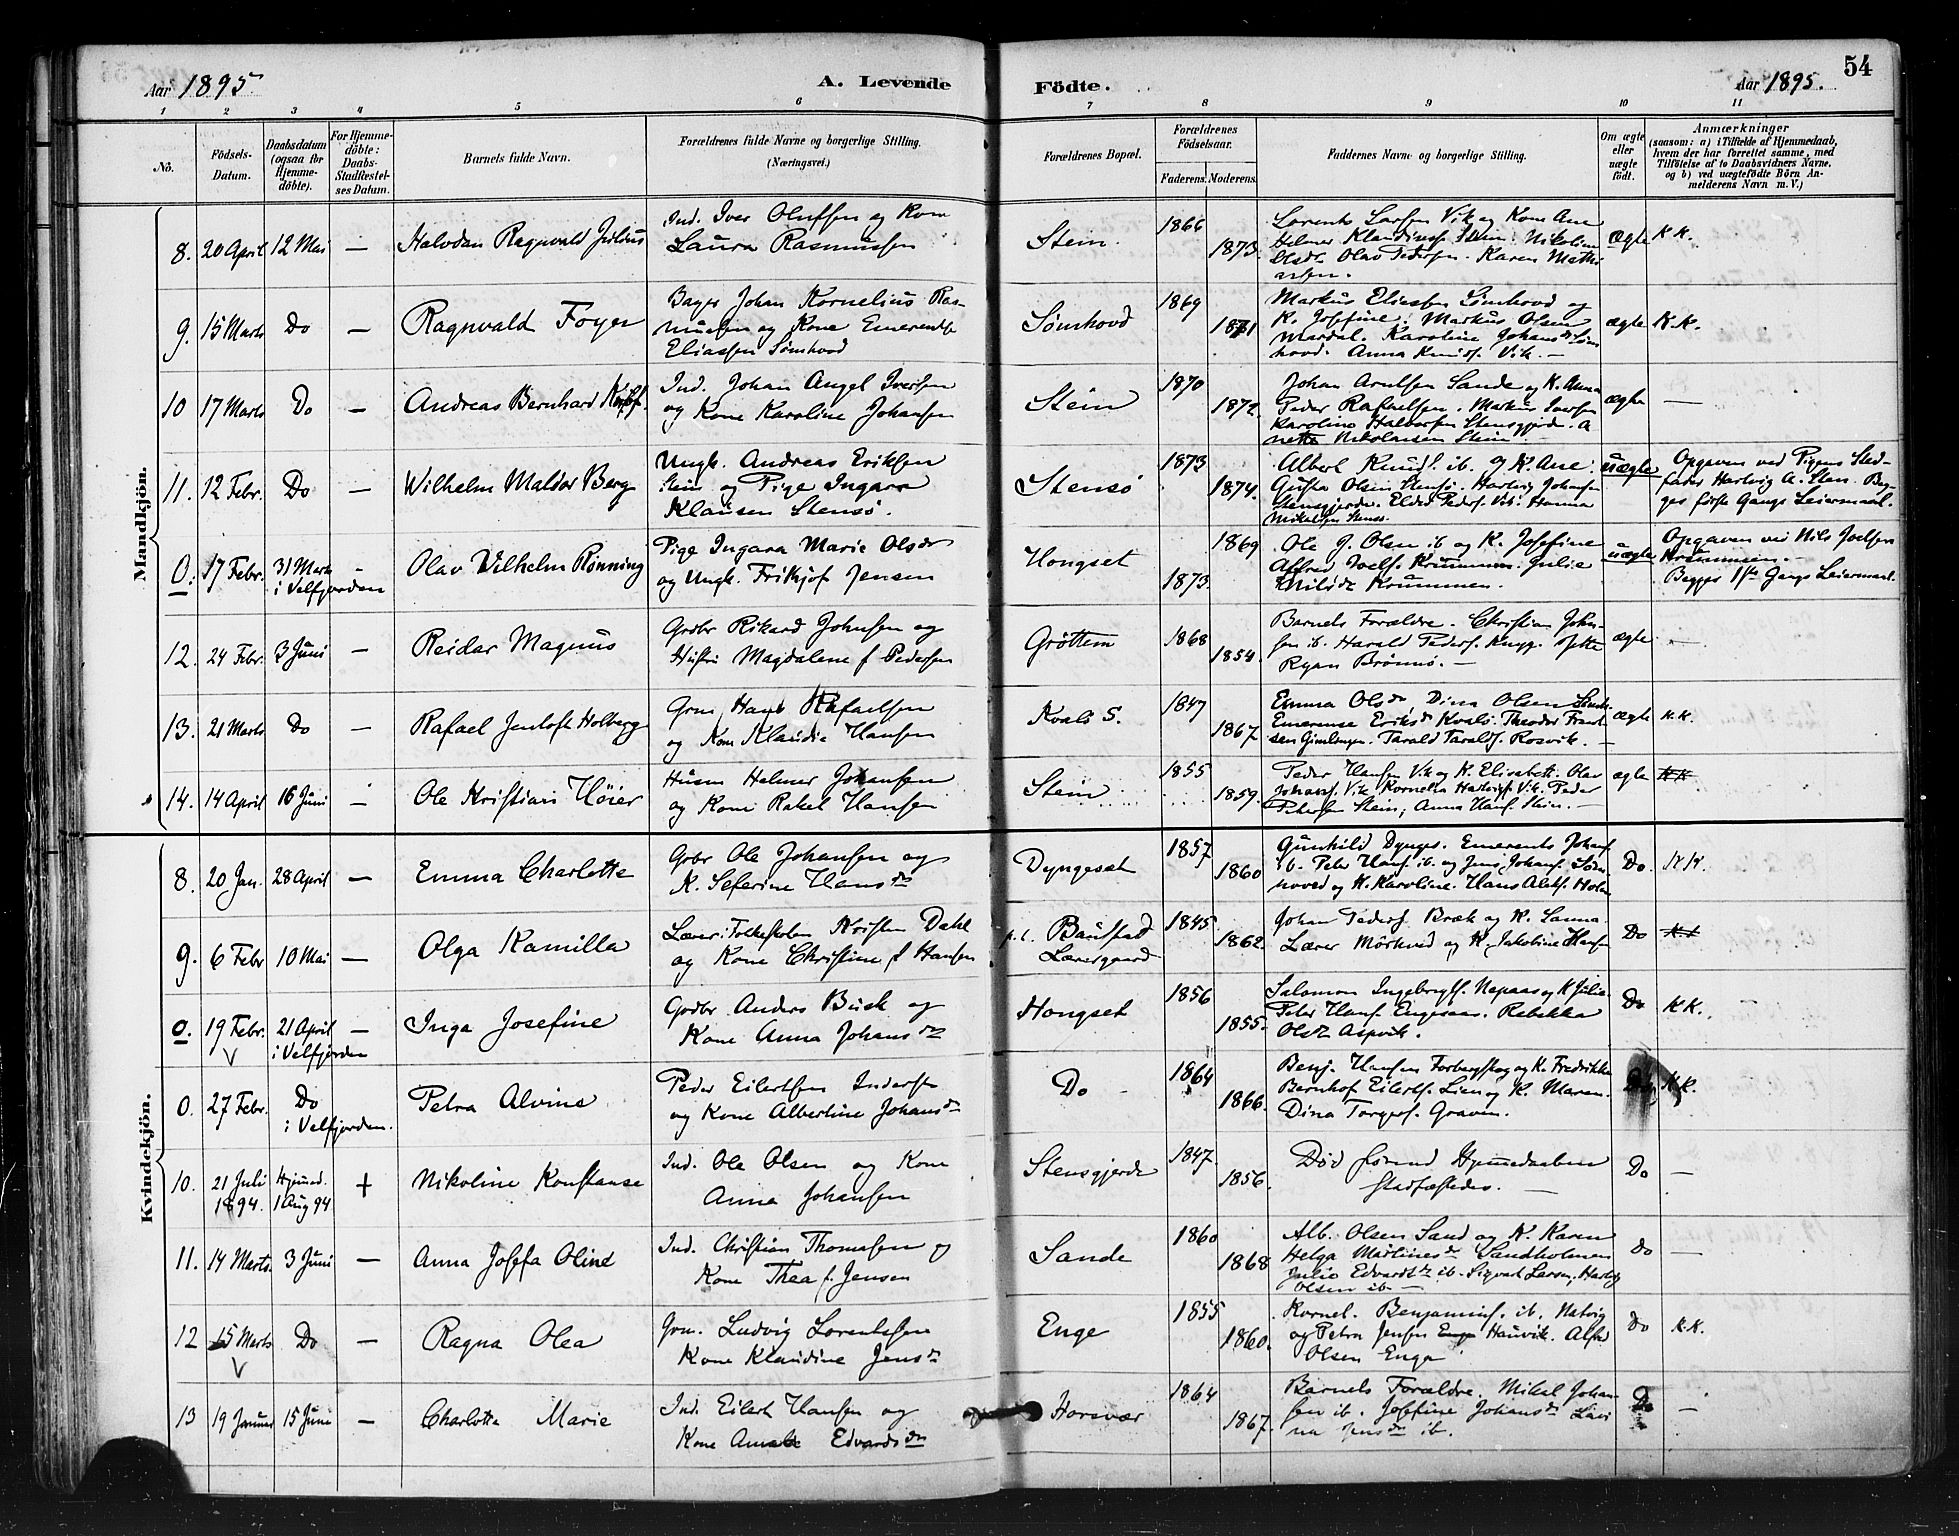 Aar 1895. A. Levende Födte. Aar 1895. 54
1 2 3 4 5 6 7 8 9 10 11
No.
Födsels-Datum.
Daabsdatum (ogsaa for Hjemmedöbte).
For Hjemmedöbte: Daabs-Stadfestelses Datum.
Barnets fulde Navn.
Forældrenes fulde Navne og borgerlige Stilling.
(Næringsvei.)
Forældrenes Bopæl.
Forældrenes Födselsaar.
Faderens. Moderens.
Faddernes Navne og borgerlige Stilling.
Om ægte eller uægte födt.
Anmærkninger
(saasom: a) i Tilfælde af Hjemmedaab, hvem der har forrettet samme, med Tilföielse af to Daabsvidners Navne, og b) ved uægtefödte Börn Anmelderens Navn m. V.)
Mandkjön.
8. 20 April 12 Mai — Halvdan Ragnvald Julius
Ind. Iver Oluffsen og Kone
Laura Rasmussen
Stein. 1866 1873.
Lorents Larsen Vik og Kone Ane
Helmer Klaudiuss. Stein. Nikoline
Olsdr Olav Pedersen. Karen Mathi
asen.
ægte K K.
9. 15 Marts Do — Ragnvald Foyer
Bager Johan Kornelius Ras-
mussen og Kone Emerentse
Eliassen Sømhovd
Sømhovd 1869 1871
Markus Eliassen Sømhovd og
K. Josefine. Markus Olsen
Mardal. Karoline Johansdr Søm
hovd. Anna Knuds. Vik. —
ægte K.K.
10 17 Marts Do — Andreas Bernhard
Ind. Johan Angel Iversen
og Kone Karoline Johansen
Stein 1870 1872.
Johan Arntsen Sande og K. Anna
Peder Rafaelsen. Markus Iversen
Karoline Halvorsen Stensgjerde. A
nette Nikolaisen Stein.
ægte —
11. 12 Febr. Do — Wilhelm Maldor Berg
Ungk. Andreas Eriksen
Stein og Pige Ingara
Klausen Stensö.
Stensö 1873 1874.
Albert Knuds. ib. og K. Ane.
Gusta Olsen Stensö. Hartvig Johansen
Stensgjerde. Eldes Peders. Vik. Hanna
Nikolaisen Stensö
uægte
Opgaven ved Pigens Sted-
fader Hartvig A. Sten. Beg-
ges förste Gangs Leiermaal.
0. 17 Febr. 31 Marts i Velfjorden — Olav Wilhelm Rönning
Pige Ingara Marie Olsdr
og Ungk. Frithjof Jensen
Hongset 1869 1873.
Ole J. Olsen ib og K. Josefine
Alfred Joels. Krummen. Julie
Krummen.
uægte
Opgaven ved Nils Joelsen
Krummen. —
Begges 1ste Gangs Leiermaal.
12. 24 Febr. 3 Juni — Reidar Magnus
Grdbr Rikard Johnsen og
Hustru Magdalene f Pedersen
Gröttem 1868 1854.
Barnets Forældre. Christian John-
sen ib. Harald Peders. Jette
Ryan Brönnö. —
ægte —
13. 21 Marts Do — Rafael Jentoft Holberg
Grm Hans Rafaelsen
og Kone Klaudie Hansen
Kvalö S. 1847 1867
Emma Olsdr, Dina Olsen
Emerense Eriksdr Kvalö. Theodor Frant
sen. Tarald Taralds. Rosvik. —
ægte K.K.
14. 14 April 16 Juni — Ole Kristian Höier
Husm Helmer Johansen
og Kone Rakel Hansen
Stein 1855 1859.
Peder Hansen Vik og K. Elisabeth. Olav
Johans. Vik Kornelia Hartvigs. Vik. Peder
Petersen Stein, Anna Hans. Stein. —
ægte KK
Kvindekjön.
8. 20 Jan. 28 April — Emma Charlotte
Grbr Ole Johansen og
K. Seferine Hansdr
Dyngeset 1857 1860
Gunhild Dynges. Emerents Johans
ib. Peter Hans. ib. og Jens Johans. Söm
hoved og K. Karoline. Hans
Do. K K.
9. 6 Febr 10 Mai — Olga Kamilla
Lærer i Folkeskolen Kristen Dahl
og Kone Christine f Hansen
p.t. Baustad Lærergaard 1845 1862.
Johan Peders. Bræk og K. Sanna.
Lærer Mörkved og K. Jakobine Hansen
Do
0. 19 Febr. 21 April i Velfjorden — Inga Josefine
Grdbr Anders Busk og
Kone Anna Johansdr
Hongset 1856 1855.
Salomon Ingebrigts. Nepaas og K Julie
Peter Hans. Engesaas. Rebekka
Olsdr Aspvik.
Do KK.
0. 27 Febr. Do i Velfjorden. Petra Alvine
Peder Eilertsen Indersen
og Kone Albertine Johansdr
Do 1864 1866.
Benj. Hansen Forbergskog og K. Fredrikke
Bernhof Eilerts. Lien og K. Maren.
Dina Torgers. Graven.
Do K.K.
10. 21 Juli 1894. Hjemmd. 1 Aug 94 + Nikoline Konstanse
Ind. Ole Olsen og Kone
Anna Johansen
Stensgjerde 1847. 1856.
Död förend Hjemmedaaben
stadfæstedes. —
Do —
11. 14 Marts. 3 Juni — Anna Josefa Oline
Ind. Christian Thomasen og
Kone Thea f. Jensen
Sande 1860 1868
Alb. Olsen Sand og K. Karen
Helga Martinesdr Sandholmen
Julie Edvardsdr ib. Sigvart Larsen, Hartvig
Olsen ib. —
Do —
12 15 Marts Do — Ragna Olea
Grm. Ludvig Lorentsen
Kone Klaudine Jensdr
Enge 1855 1860.
Kornel. Benjamins. ib. Hatvig
og Petra Jensen Enge Hauvik. Alfred
Olsen Enge
Do K.K.
13 19 Januar 15 Juni — Charlotte Marie
Ind. Eilert Hansen og
Kone Amalie Edvardsdr
Horsvær 1864 1867.
Barnets Forældre. Mikal Johan-
sen ib. Josefine Johansdr Lavi
na Jensdr ib.
Do —